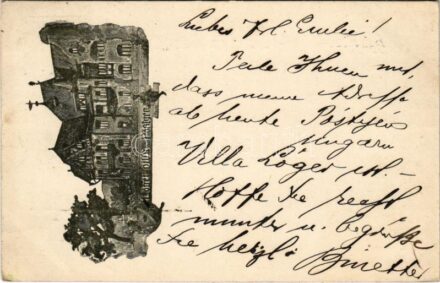 Liebes Frl. Emilie!
Teile Ihnen mit,
dass meine Adresse
ab heute Pöstyén
Ungarn
Villa Lóger ist.
Hoffe Sie recht
munter u. begrüße
Sie herzl.